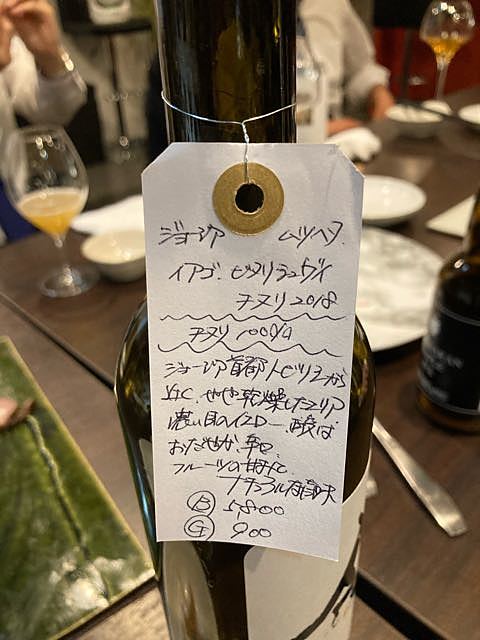 ジョージア ムツヘタ.
イアゴ. ビタリシュヴィリ
チヌリ 2018
チヌリ 100%
ジョージア首都トビリシから
近く、やや乾燥したエリア
濃い目のイエロー、酸は
おだやか、辛口、
フルーツの甘みに
ナチュラルな旨味
Ⓑ 5,800
Ⓖ 900